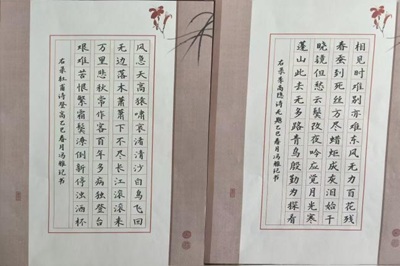 风急天高猿啸哀渚清沙白鸟飞回
无边落木萧萧下不尽长江滚滚来
万里悲秋常作客百年多病独登台
艰难苦恨繁霜鬓潦倒新停浊酒杯
右录杜甫诗登高乙巳春月冯雅书
相见时难别亦难东风无力百花残
春蚕到死丝方尽蜡炬成灰泪始干
晓镜但愁云鬓改夜吟应觉月光寒
蓬山此去无多路青鸟殷勤为探看
右录李商隐诗无题乙巳春月冯雅书